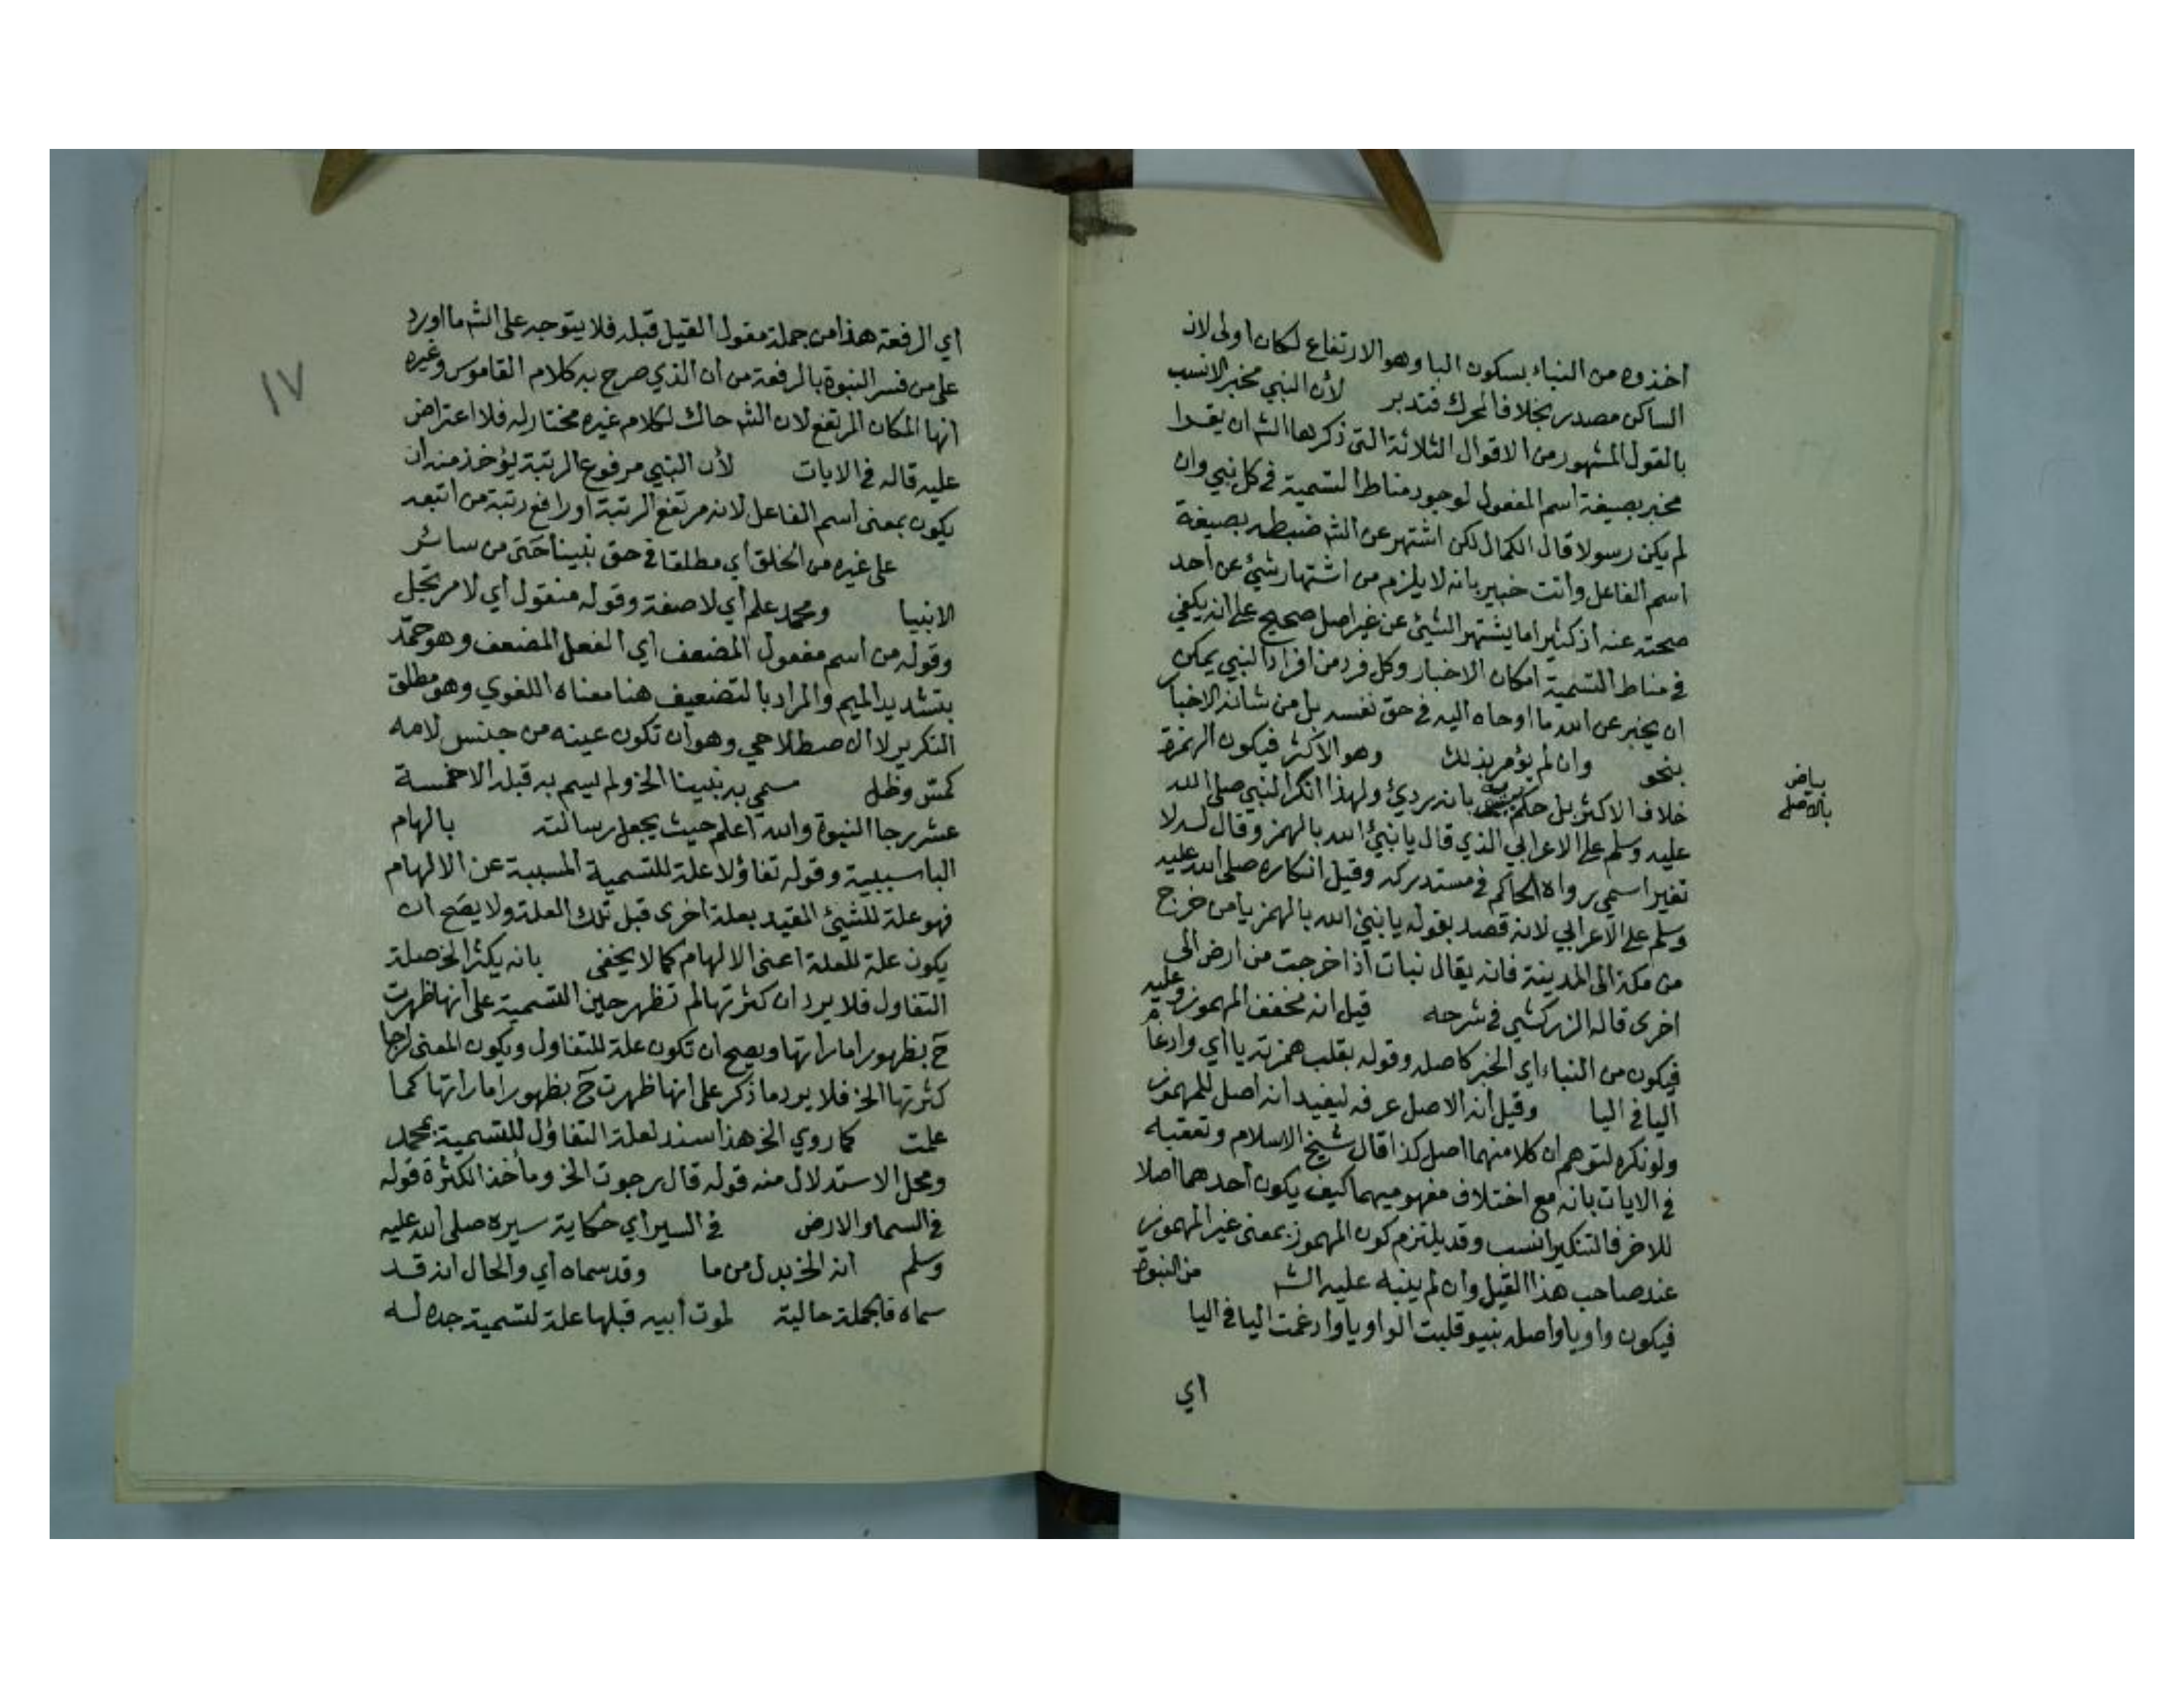 اخذوه من النباء بسكون البا وهو الارتفاع لكان اولى لان
الساكن مصدر بخلاف المحرك فتدبر لأن النبي مخبر الانسب
بالقول المشهور من الاقوال الثلاثة التي ذكرها الشـ ان يقرا
مخبر بصيغة اسم المفعول لوجود مناط التسمية في كل نبي وان
لم يكن رسولا قال الكمال لكن اشتهر عن الشـ ضبطه بصيغة
اسم الفاعل وانت خبير بانه لا يلزم من اشتهار شيئ عن احد
صحته عنه اذ كثيرا ما يشتهر الشيئ عن غير اصل صحيح على انه يكفي
في مناط التسمية امكان الاخبار وكل فرد من افراد النبي يمكن
ان يخبر عن الله ما اوحاه اليه في حق نفسه بل من شانه الاخبار
بنحو وان لم يؤمر بذلك وهو الأكثر فيكون الهمزة
بياض
بالاصل
خلاف الاكثر بل حكم بانه رديئ ولهذا انكر النبي صلى الله
عليه وسلم على الاعرابي الذي قال يا نبيئ الله بالهمز وقال له لا
تغير اسمي رواه الحاكم في مستدركه وقيل انكاره صلى الله عليه
وسلم على الاعرابي لانه قصد بقوله يا نبيئ الله بالهمز يا من خرج
من مكة الى المدينة فانه يقال نبات اذا خرجت من ارض الى
اخرى قاله الزركشي في شرحه قيل انه مخفف المهموز وعليه
فيكون من النباء اي الخبر كاصله وقوله بقلب همزته يا اي وادغام
اليا في اليا وقيل أنه الاصل عرفه ليفيد انه اصل للمهموز
ولو نكره لتوهم ان كلا منهما اصل كذا قال شيخ الاسلام وتعقبه
في الايات بانه مع اختلاف مفهوميهما كيف يكون احدهما اصلا
للاخر فالتنكير انسب وقد يلتزم كون المهموز بمعنى غير المهموز
عند صاحب هذا القيل وان لم ينبه عليه الشـ من النبوة
فيكون واويا واصله نبيو قلبت الواو يا وادغمت اليا في اليا
اي
١٧
اي الرفعة هذا من جملة مقول القيل قبله فلا يتوجه على الشـ ما اورد
على من فسر النبوة بالرفعة من ان الذي صرح به كلام القاموس وغيره
انها المكان المرتفع لان الشـ حاك لكلام غيره مختار له فلا اعتراض
عليه قاله في الايات لأن النبي مرفوع الرتبة يؤخذ منه ان
يكون بمعنى اسم الفاعل لانه مرتفع الرتبة او رافع رتبة من اتبعه
على غيره من الخلق اي مطلقا في حق نبينا حتى من سائر
الانبيا ومحمد علم أي لا صفة وقوله منقول اي لا مرتجل
وقوله من اسم مفعول المضعف اي الفعل المضعف وهو حمّد
بتشديد الميم والمراد بالتضعيف هنا معناه اللغوي وهو مطلق
التكرير لا الاصطلاحي وهو ان تكون عينه من جنس لامه
كمسّ وظل سمي به نبينا الخ ولم يسم به قبله الا خمسة
عشر رجا النبوة والله اعلم حيث يجعل رسالته بالهام
البا سببية وقوله تفاؤلا علة للتسمية المسببة عن الالهام
فهو علة للشيئ المقيد بعلة اخرى قبل تلك العلة ولا يصح ان
يكون علة للعلة اعنى الالهام كما لا يخفى بانه يكثر الخ صلة
التفاول فلا يرد ان كثرتها لم تظهر حين التسمية على انها ظهرت
ح بظهور اماراتها ويصح ان تكون علة للتفاول ويكون المعنى لرجا
كثرتها الخ فلا يرد ما ذكر على انها ظهرت ح بظهور اماراتها كما
علمت كما روي الخ هذا سند لعلة التفاؤل للتسمية بمحمد
ومحل الاستدلال منه قوله قال رجوت الخ وماخذ الكثرة قوله
في السما والارض في السير اي حكاية سيره صلى الله عليه
وسلم انه الخ بدل من ما وقد سماه اي والحال انه قد
سماه فالجملة حالية لموت أبيه قبلها علة لتسمية جده له